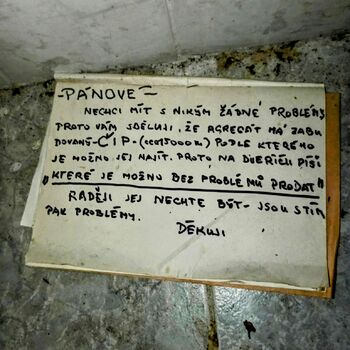 -PÁNOVÉ-
NECHCI MÍT S NIKÝM ŽÁDNÉ PROBLÉMY
PROTO VÁM SDĚLUJI, ŽE AGREGÁT MÁ ZABU
DOVANÝ-ČIP-(cca15000Kč) PODLE KTERÉHO
JE MOŽNO JEJ NAJÍT. PROTO NA DVEŘÍCH PÍŠI
"KTERÉ JE MOŽNO BEZ PROBLÉMŮ PRODAT"
RADĚJI JEJ NECHTE BÝT- JSOU S TÍM
PAK PROBLÉMY.
DĚKUJI